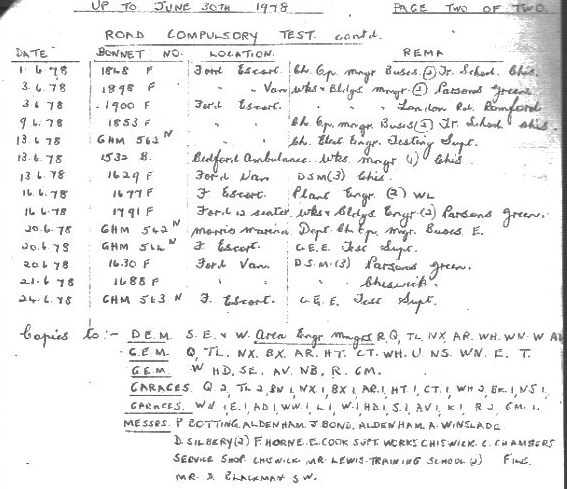 UP TO JUNE 30TH 1978 PAGE TWO OF TWO.
ROAD COMPULSORY TEST. contd.
DATE BONNET NO. LOCATION. REMA
1.6.78 1848 F Ford Escort. Ch. Op. mngr Buses (2) Tr. School Chis.
3.6.78 1898 F " Van Wks & Bldgs mngr. (2) Parsons Green.
3.6.78 1900 F Ford Escort. " " " London Rd. Romford
9.6.78 1853 F " " Ch. Op. mngr. Buses (2) Tr. School Chis.
13.6.78 GHM 562 N " " Ch. Elect Engr. Testing Supt.
13.6.78 1532 B. Bedford Ambulance. Wks. mngr (1) Chis.
13.6.78 1629 F Ford Van DSM (3) Chis.
16.6.78 1677 F F Escort. Plant Engr. (2) WL
16.6.78 1791 F Ford 12 seater. Wks & Bldgs Engr (2) Parsons Green.
20.6.78 GHM 542 N Morris Marina Dept. Ch. Op. mgr. Buses E.
20.6.78 GHM 564 N F Escort. C.E.E. Test Supt.
20.6.78 1630 F Ford Van. D.S.M. (3) Parsons Green.
21.6.78 1688 F " " " Chiswick.
24.6.78 GHM 563 N F. Escort. C.E.E. Test Supt.
Copies to:- D.E.M. S.E. & W. Area Engr Mngrs R, Q, TL, NX, AR. WH. WN. W
G.E.M. Q, TL. NX. BX. AR. HT. CT. WH. U NS. WN. E. T.
G.E.M. W HD, SE. AV. NB, R. GM.
GARAGES. Q. 2, TL 2, BN 1, NX 1, BX 1, AR. 1, HT 1, CT. 1, WH 2, BK. 1, NS 1,
GARAGES. WN 1, E. 1, AD 1, WW 1, L 1, W. 1, HD 1, S. 1, AV 1, K 1, R 2, GM. 1.
MESSRS. P BOTTING, ALDENHAM. J. BOND, ALDENHAM. A. WINSLADE.
D. SILBERY (2) F. HORNE. E. COOK SUPT WORKS CHISWICK. C. CHAMBERS
SERVICE SHOP CHISWICK. MR. LEWIS-TRAINING SCHOOL (2) FILE.
MR. BLACKMAN S.W.